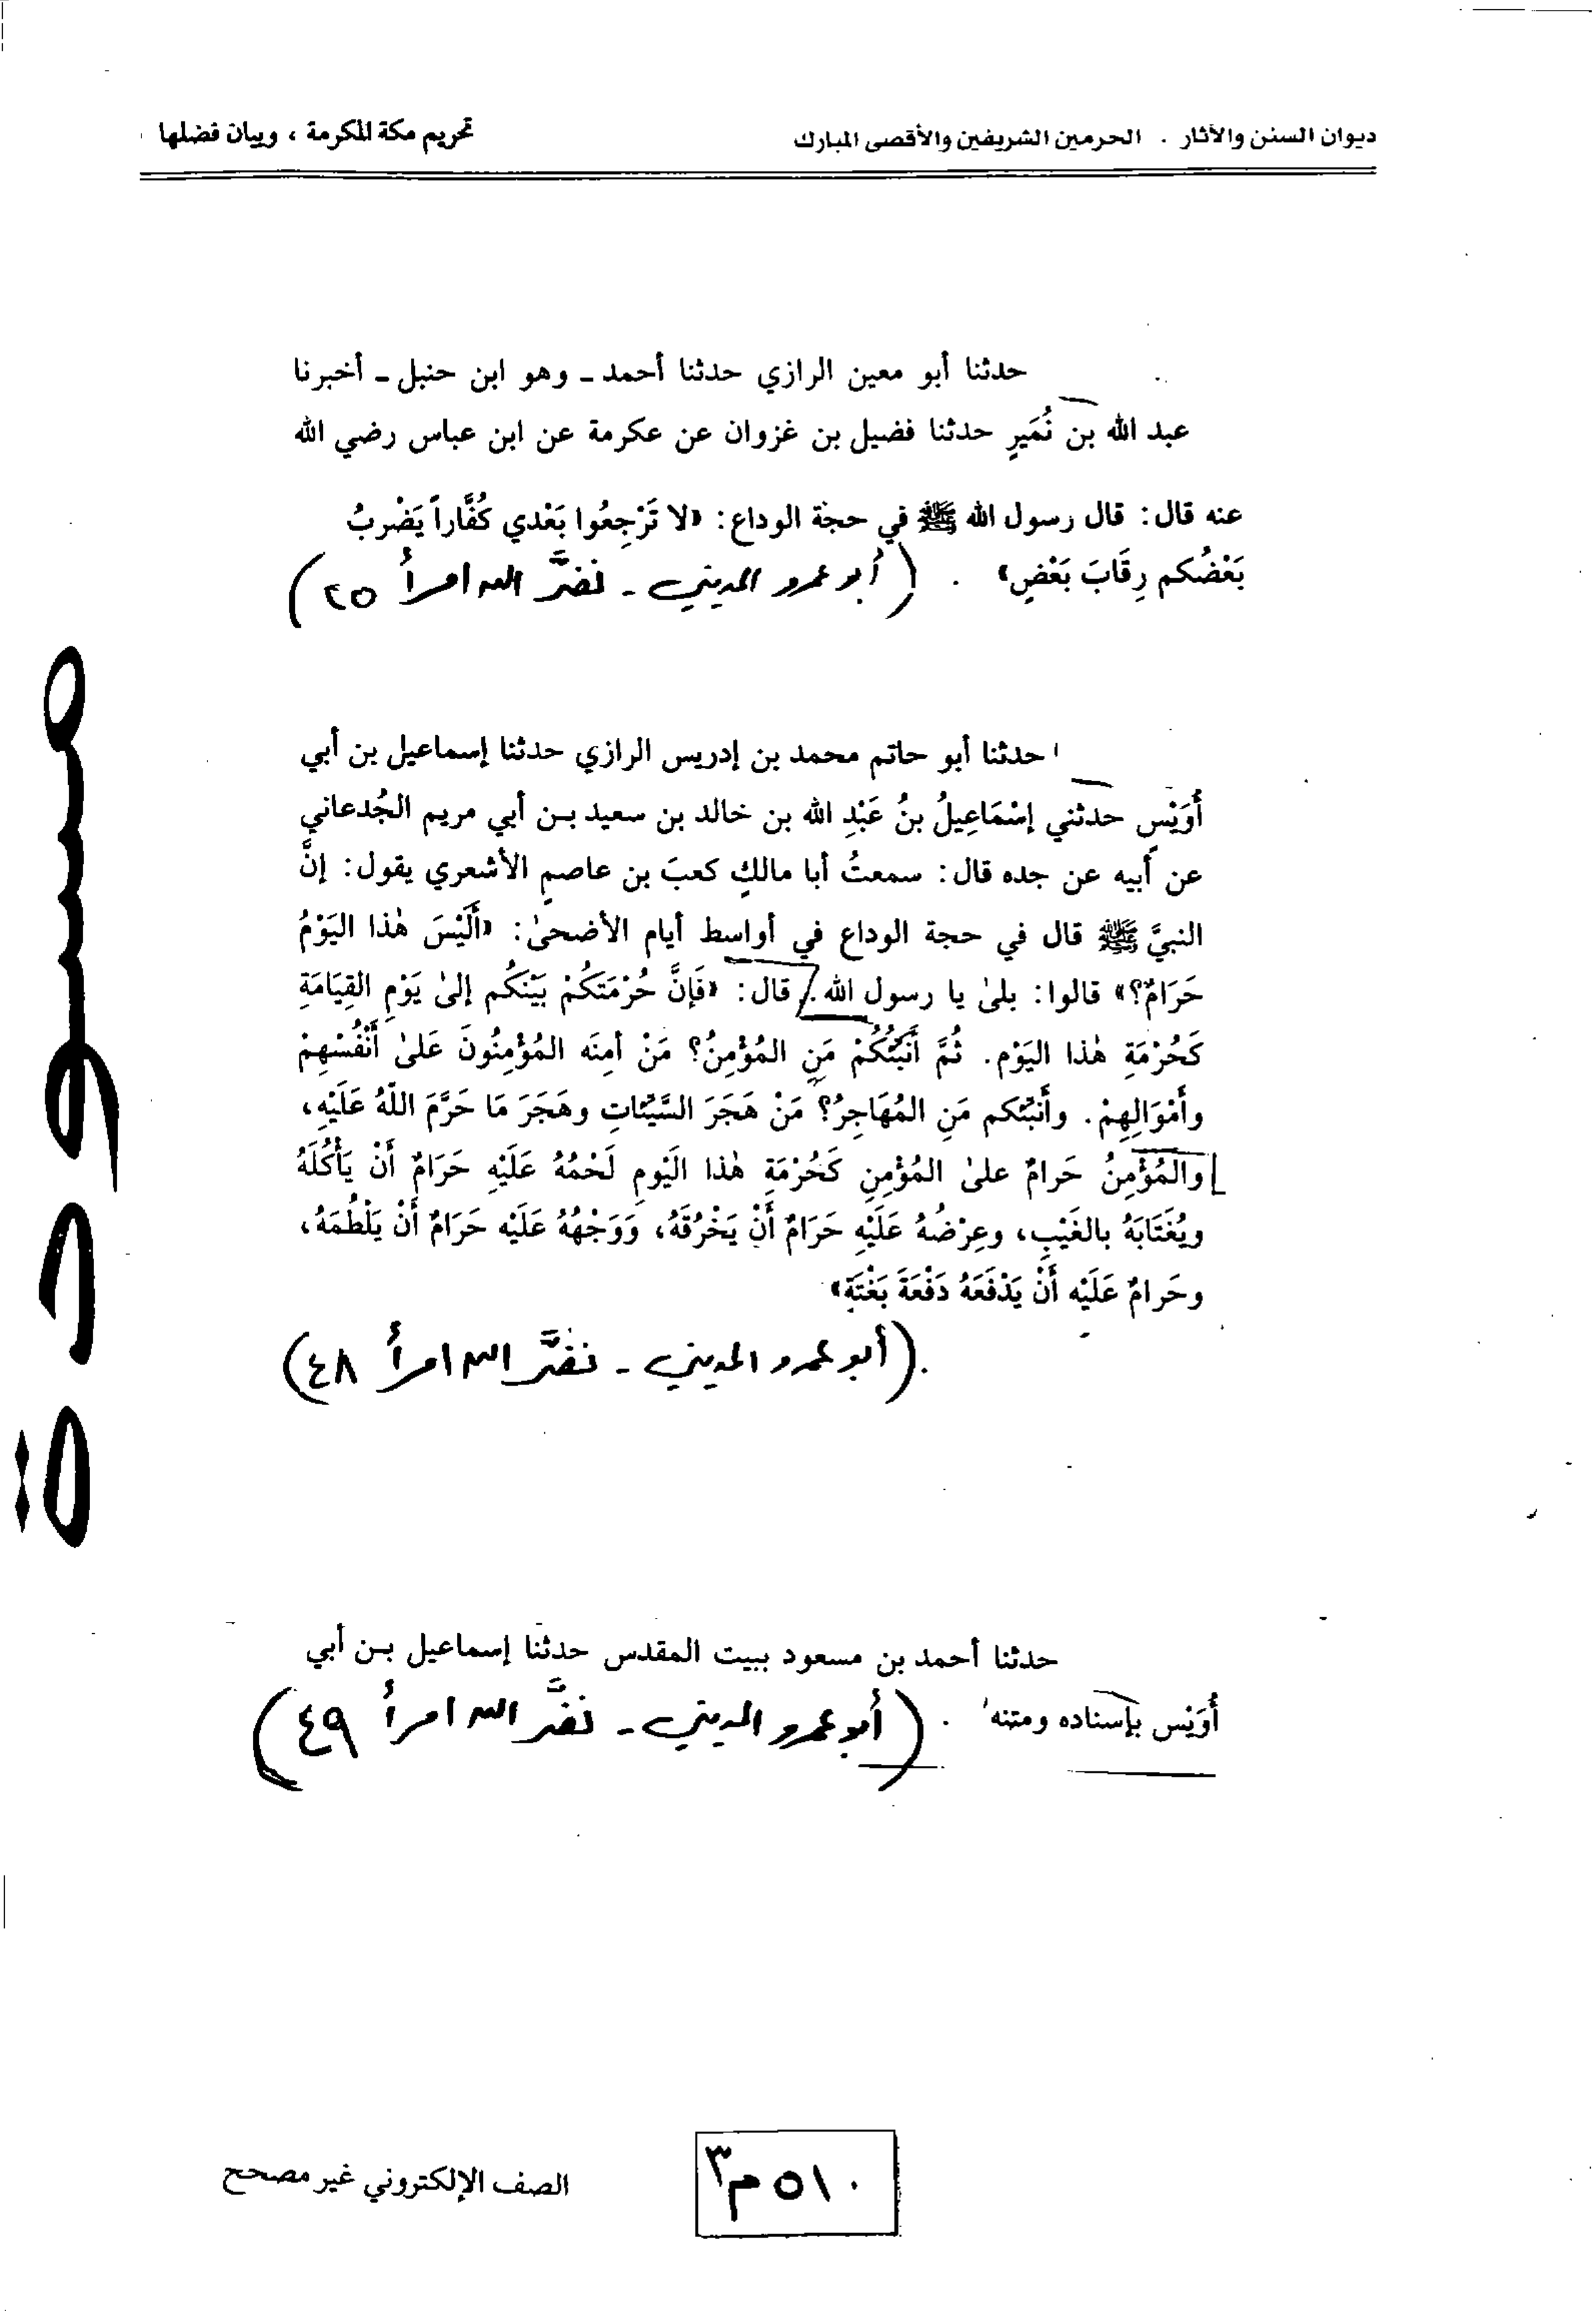 ديوان السنن والآثار . الحرمين الشريفين والأقصى المبارك
تحريم مكة المكرمة ، وبيان فضلها
حدثنا أبو معين الرازي حدثنا أحمد ـ وهو ابن حنبل ـ أخبرنا
عبد الله بن نُمَيرٍ حدثنا فضيل بن غزوان عن عكرمة عن ابن عباس رضي الله
عنه قال: قال رسول الله ﷺ في حجة الوداع: «لا تَرْجِعُوا بَعْدي كُفَّاراً يَضْرِبُ
بَعْضُكم رِقَابَ بَعْضٍ» . (أبو عمرو المديني ـ نضَّر الله امرأ ٢٥)
حدثنا أبو حاتم محمد بن إدريس الرازي حدثنا إسماعيل بن أبي
أُوَيْسٍ حدثني إسْمَاعِيلُ بنُ عَبْدِ الله بن خالد بن سعيد بـن أبي مريم الجُدعاني
عن أبيه عن جده قال: سمعتُ أبا مالكٍ كعبَ بن عاصمٍ الأشعري يقول: إنَّ
النبيَّ ﷺ قال في حجة الوداع في أواسط أيام الأضحىٰ: «أَلَيْسَ هٰذا اليَوْمُ
حَرَامٌ؟» قالوا: بلىٰ يا رسول الله. قال: «فَإنَّ حُرْمَتَكُمْ بَيْنَكُم إلىٰ يَوْمِ القِيَامَةِ
كَحُرْمَةِ هٰذا اليَوْمِ. ثُمَّ أُنَبِّئُكُمْ مَنِ المُؤْمِنُ؟ مَنْ أمِنَه المُؤْمِنُونَ عَلىٰ أَنْفُسْهِمْ
وأَمْوَالِهِمْ. وأُنَبِّئكم مَنِ المُهَاجِرُ؟ مَنْ هَجَرَ السَّيِّئاتِ وهَجَرَ مَا حَرَّمَ اللّهُ عَلَيْهِ،
والمُؤْمِنُ حَرامٌ علىٰ المُؤْمِنِ كَحُرْمَةِ هٰذا الَيْومِ لَحْمُهُ عَلَيْهِ حَرَامٌ أَنْ يَأْكُلَهُ
ويُغْتَابَهُ بالغَيْبِ، وعِرْضُهُ عَلَيْهِ حَرَامٌ أَنْ يَخْرُقَهُ، وَوَجْهُهُ عَلَيْه حَرَامٌ أَنْ يَلْطُمَهُ،
وحَرامٌ عَلَيْه أَنْ يَدْفَعَهُ دَفْعَةَ بَغْتَةٍ»
. (أبو عمرو المديني ـ نضَّر الله امرأ ٤٨)
حدثنا أحمد بن مسعود ببيت المقدس حدثنا إسماعيل بـن أبي
أُوَيْس بإسناده ومتنه . (أبو عمرو المديني ـ نضَّر الله امرأ ٤٩)
مسودة
٥١٠ م٣
الصف الإلكتروني غير مصحح